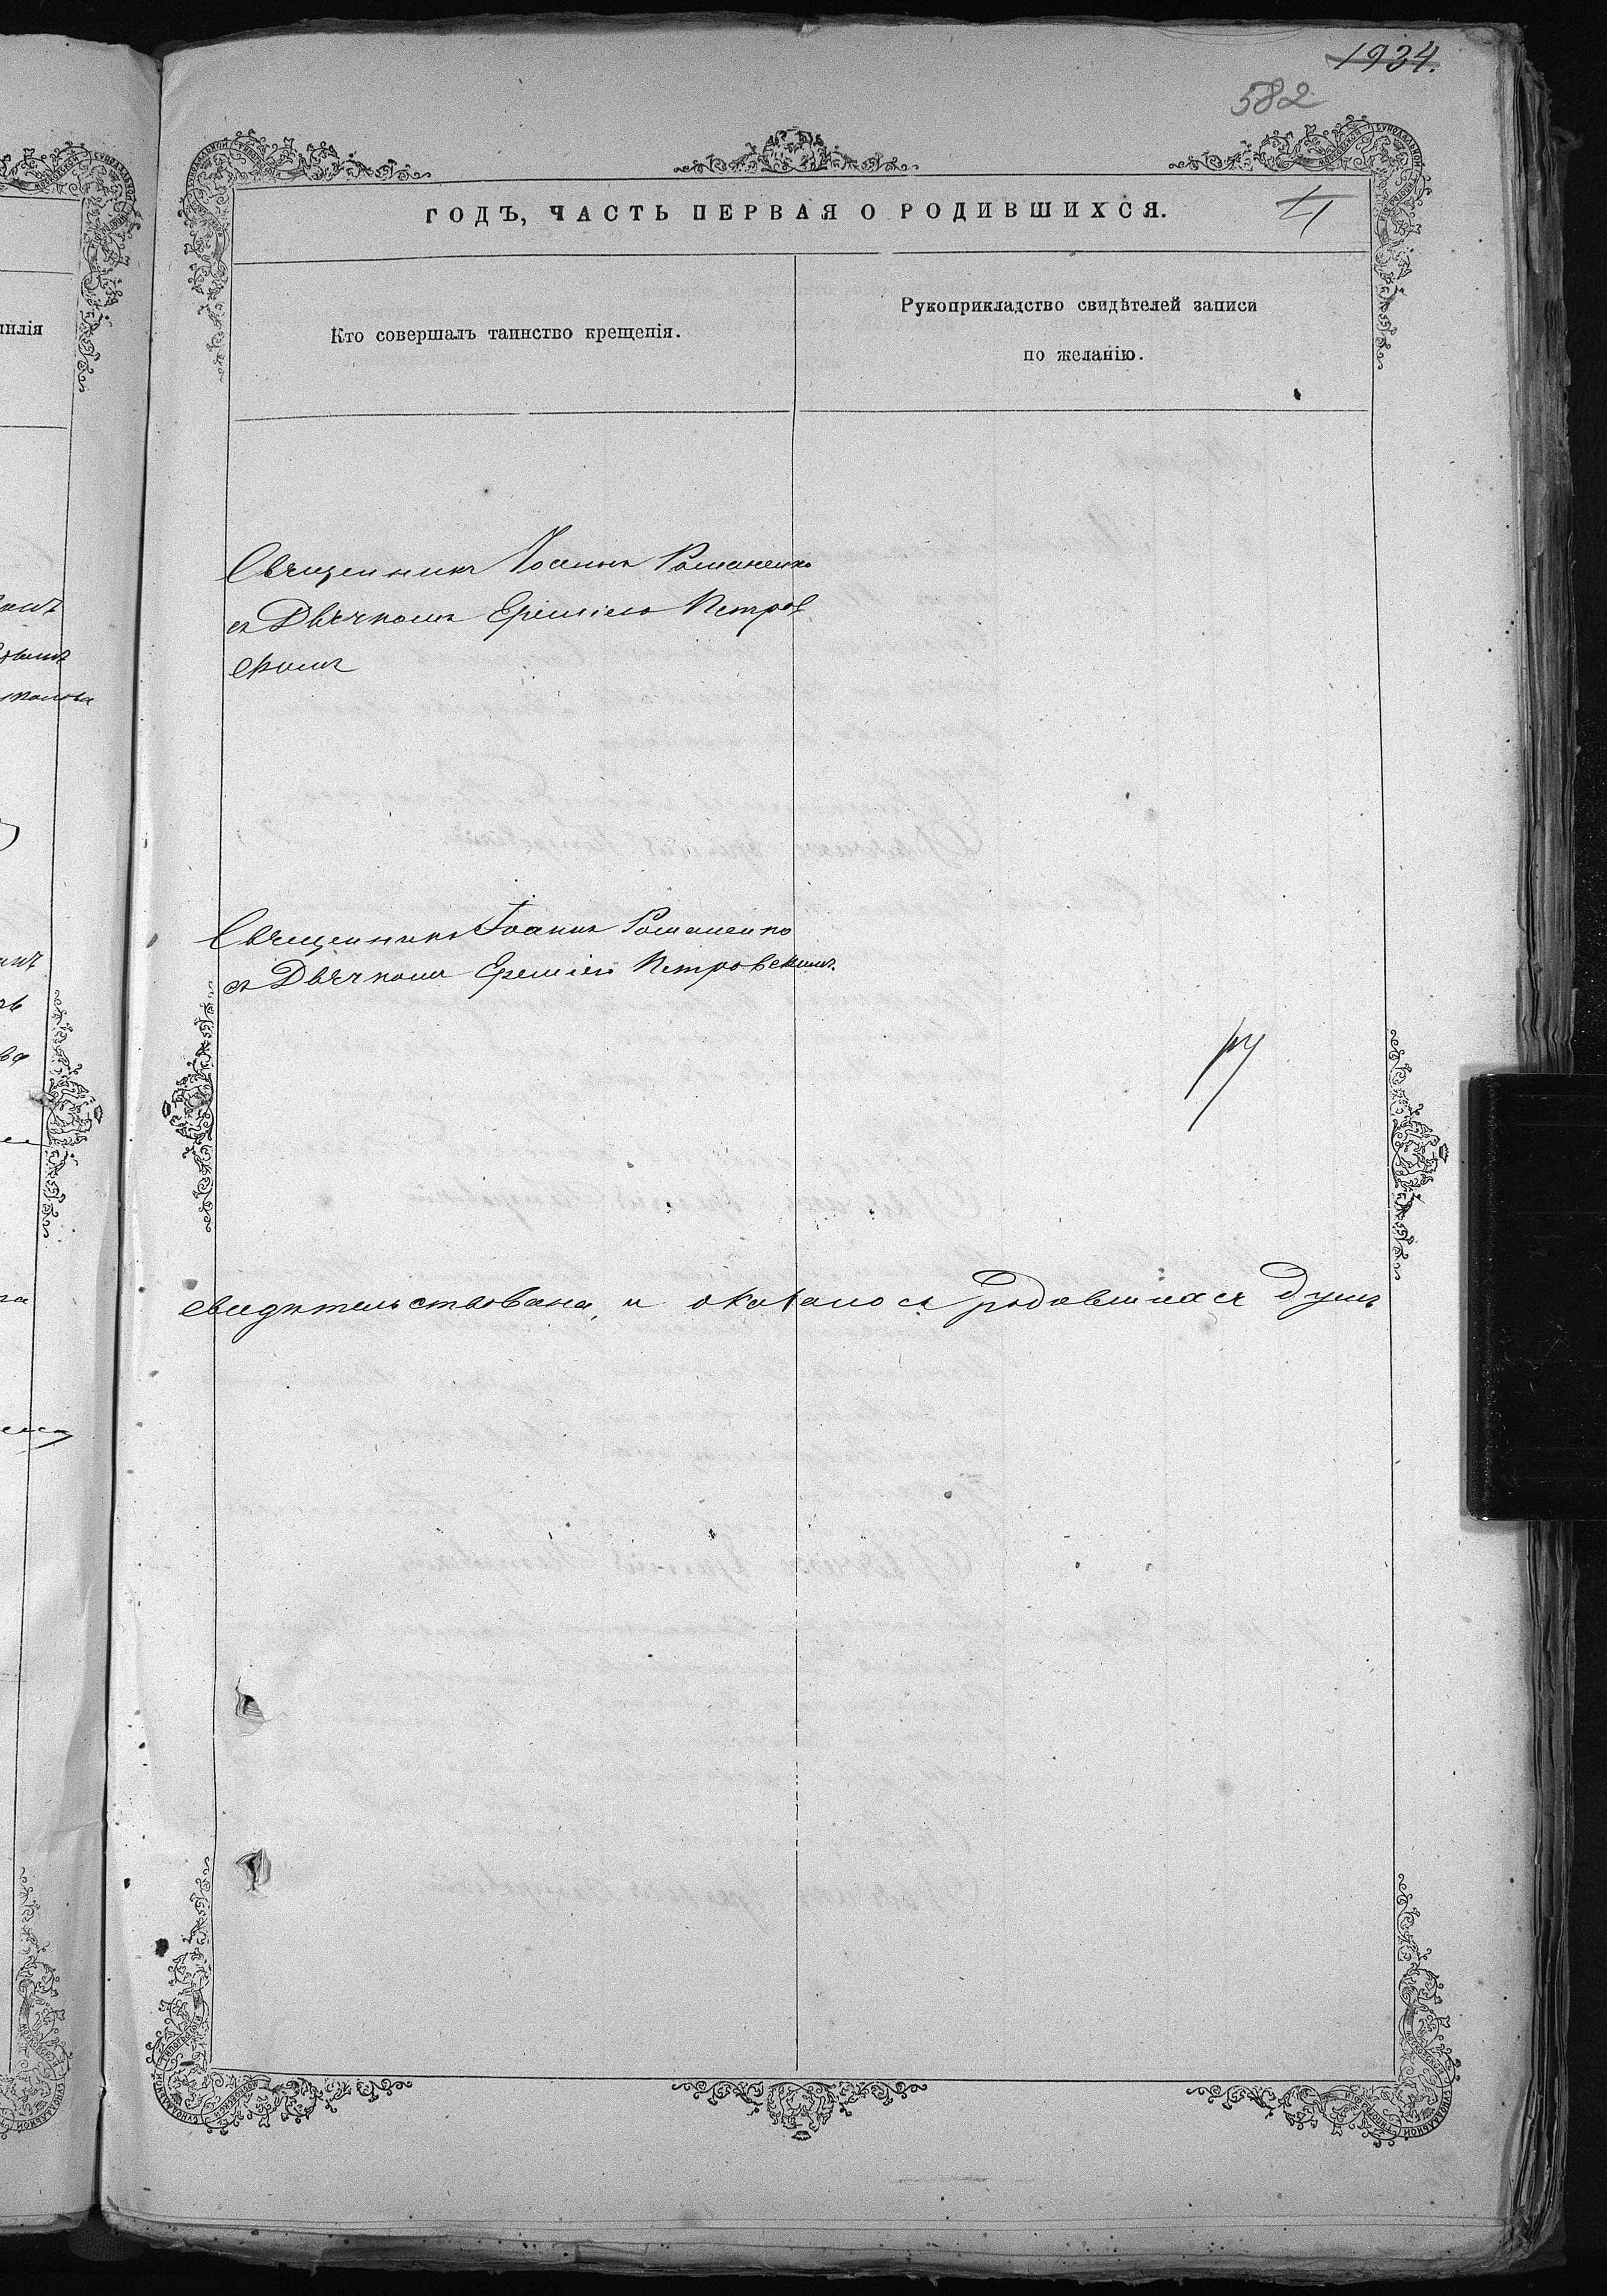 1934.
582
ГОДЪ, ЧАСТЬ ПЕРВАЯ О РОДИВШИХСЯ.
Кто совершалъ таинство крещенія.
Рукоприкладство свидѣтелей записи
по желанію.
илія
Священникъ Іоаннъ Романенко
съ Дьячкомъ Ереміею Петров
скимъ
Священникъ Іоаннъ Романенко
съ Дьячкомъ Ереміею Петровскимъ.
свидѣтельствована, и оказалося родившихся душъ